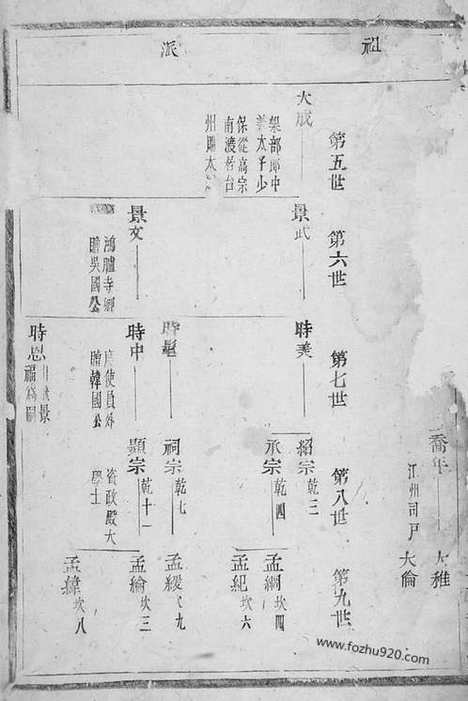 祖
派
第五世
第六世
第七世
第八世
第九世
喬年
江州司戶
大雅
大倫
大成
部郎中
太子少
保從高宗
南渡
州
景武
景文
鴻臚寺卿
贈吳國公
時美
時中
度使員外
贈韓國公
時思
福為嗣
紹宗 乾三
承宗 乾四
祠宗 乾七
顯宗 乾十一
資政殿大
學士
孟綱 坎四
孟紀 坎六
孟綬 坎九
孟綸 坎三
孟緯 坎八
www.fozhu920.com